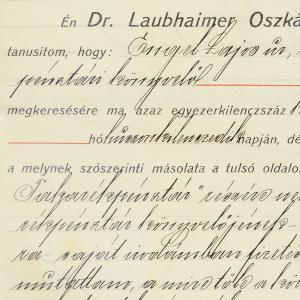 Én Dr. Laubhaimer Oszká
tanusítom, hogy: Engel Lajos ur,
pénztári könyvelő
megkeresésére ma, azaz egyezerkilenczszáz
hó huszonkilenczedik napján, dé
a melynek szószerinti másolata a tulsó oldalo
Takarékpénztár" részére
rékpénztár könyvelőjének-
rá- saját irodámban fizetés
mutattam, a mire től a kö